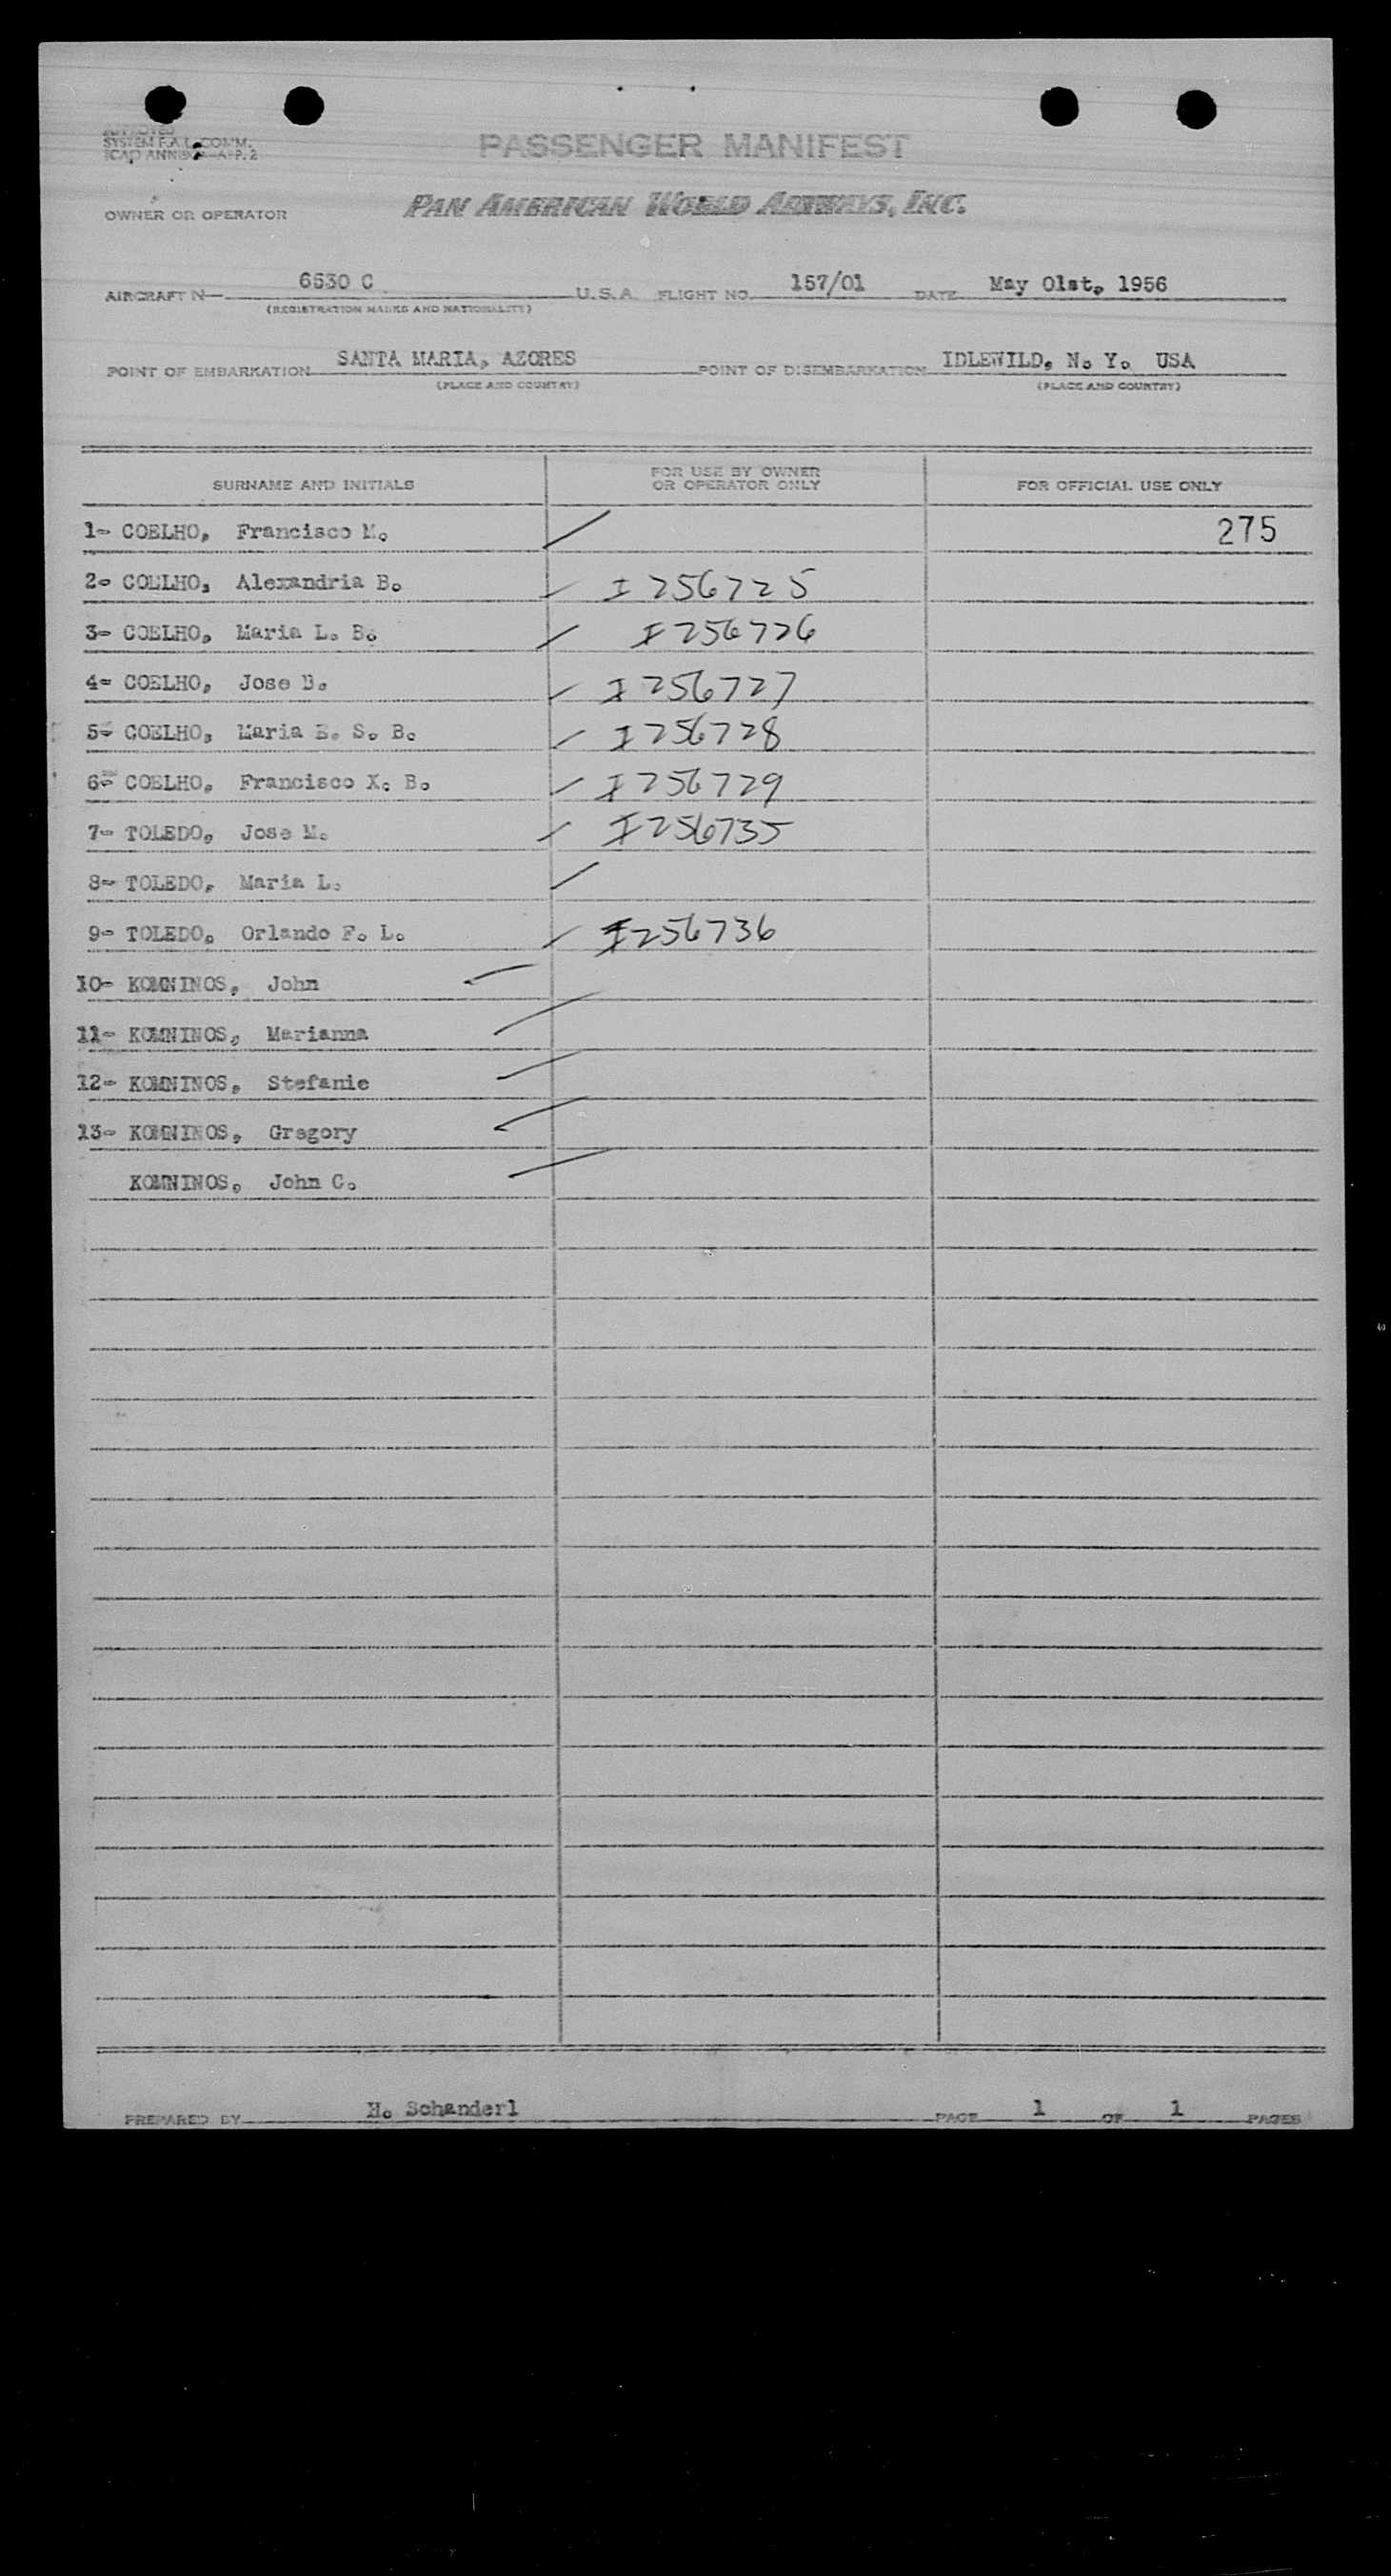 APPROVED
SYSTEM F.A.L. COMM.
ICAO ANNEX 9—APP. 2
PASSENGER MANIFEST
OWNER OR OPERATOR PAN AMERICAN WORLD AIRWAYS, INC.
AIRCRAFT N— 6530 C U.S.A. FLIGHT NO. 157/01 DATE May 01st, 1956
(REGISTRATION MARKS AND NATIONALITY)
POINT OF EMBARKATION SANTA MARIA, AZORES POINT OF DISEMBARKATION IDLEWILD, N. Y. USA
(PLACE AND COUNTRY) (PLACE AND COUNTRY)
SURNAME AND INITIALS FOR USE BY OWNER OR OPERATOR ONLY FOR OFFICIAL USE ONLY
1- COELHO, Francisco M. 275
2- COELHO, Alexandria B. I 256725
3- COELHO, Maria L. B. I 256726
4- COELHO, Jose B. I 256727
5- COELHO, Maria E. S. B. I 256728
6- COELHO, Francisco X. B. I 256729
7- TOLEDO, Jose M. I 256735
8- TOLEDO, Maria L.
9- TOLEDO, Orlando F. L. I 256736
10- KOMNINOS, John
11- KOMNINOS, Marianna
12- KOMNINOS, Stefanie
13- KOMNINOS, Gregory
KOMNINOS, John C.
PREPARED BY H. Schanderl PAGE 1 OF 1 PAGES